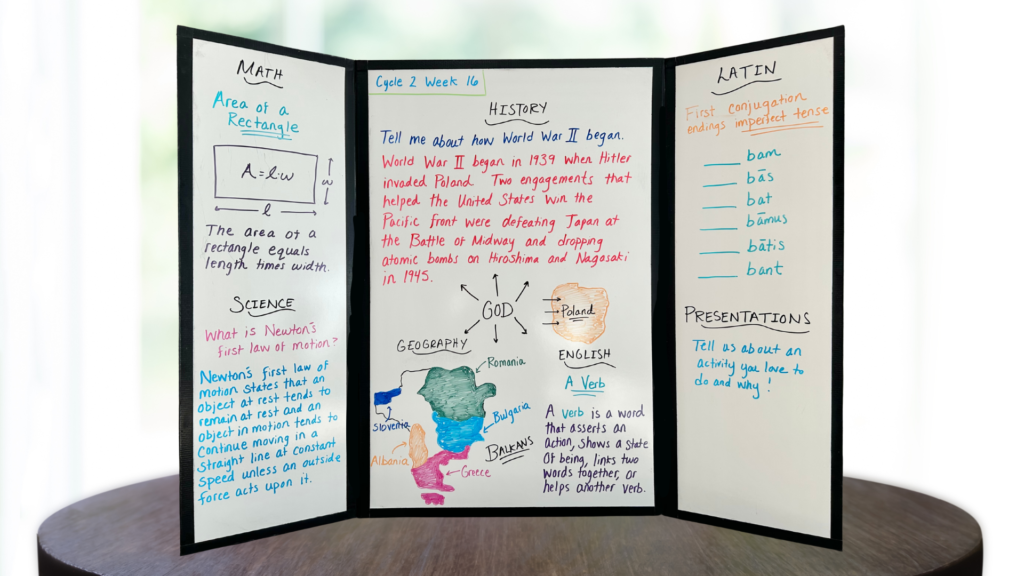 MATH
Area of a
Rectangle
A = l·w
w
l
The area of a
rectangle equals
length times width.
SCIENCE
What is Newton's
first law of motion?
Newton's first law of
motion states that an
object at rest tends to
remain at rest and an
object in motion tends to
continue moving in a
straight line at constant
speed unless an outside
force acts upon it.
Cycle 2 Week 16
HISTORY
Tell me about how World War II began.
World War II began in 1939 when Hitler
invaded Poland. Two engagements that
helped the United States win the
Pacific front were defeating Japan at
the Battle of Midway and dropping
atomic bombs on Hiroshima and Nagasaki
in 1945.
GOD
Poland
GEOGRAPHY
Romania
Slovenia
Bulgaria
Albania
BALKANS
Greece
ENGLISH
A Verb
A verb is a word
that asserts an
action, shows a state
of being, links two
words together, or
helps another verb.
LATIN
First conjugation
endings imperfect tense
____ bam
____ bās
____ bat
____ bāmus
____ bātis
____ bant
PRESENTATIONS
Tell us about an
activity you love to
do and why!